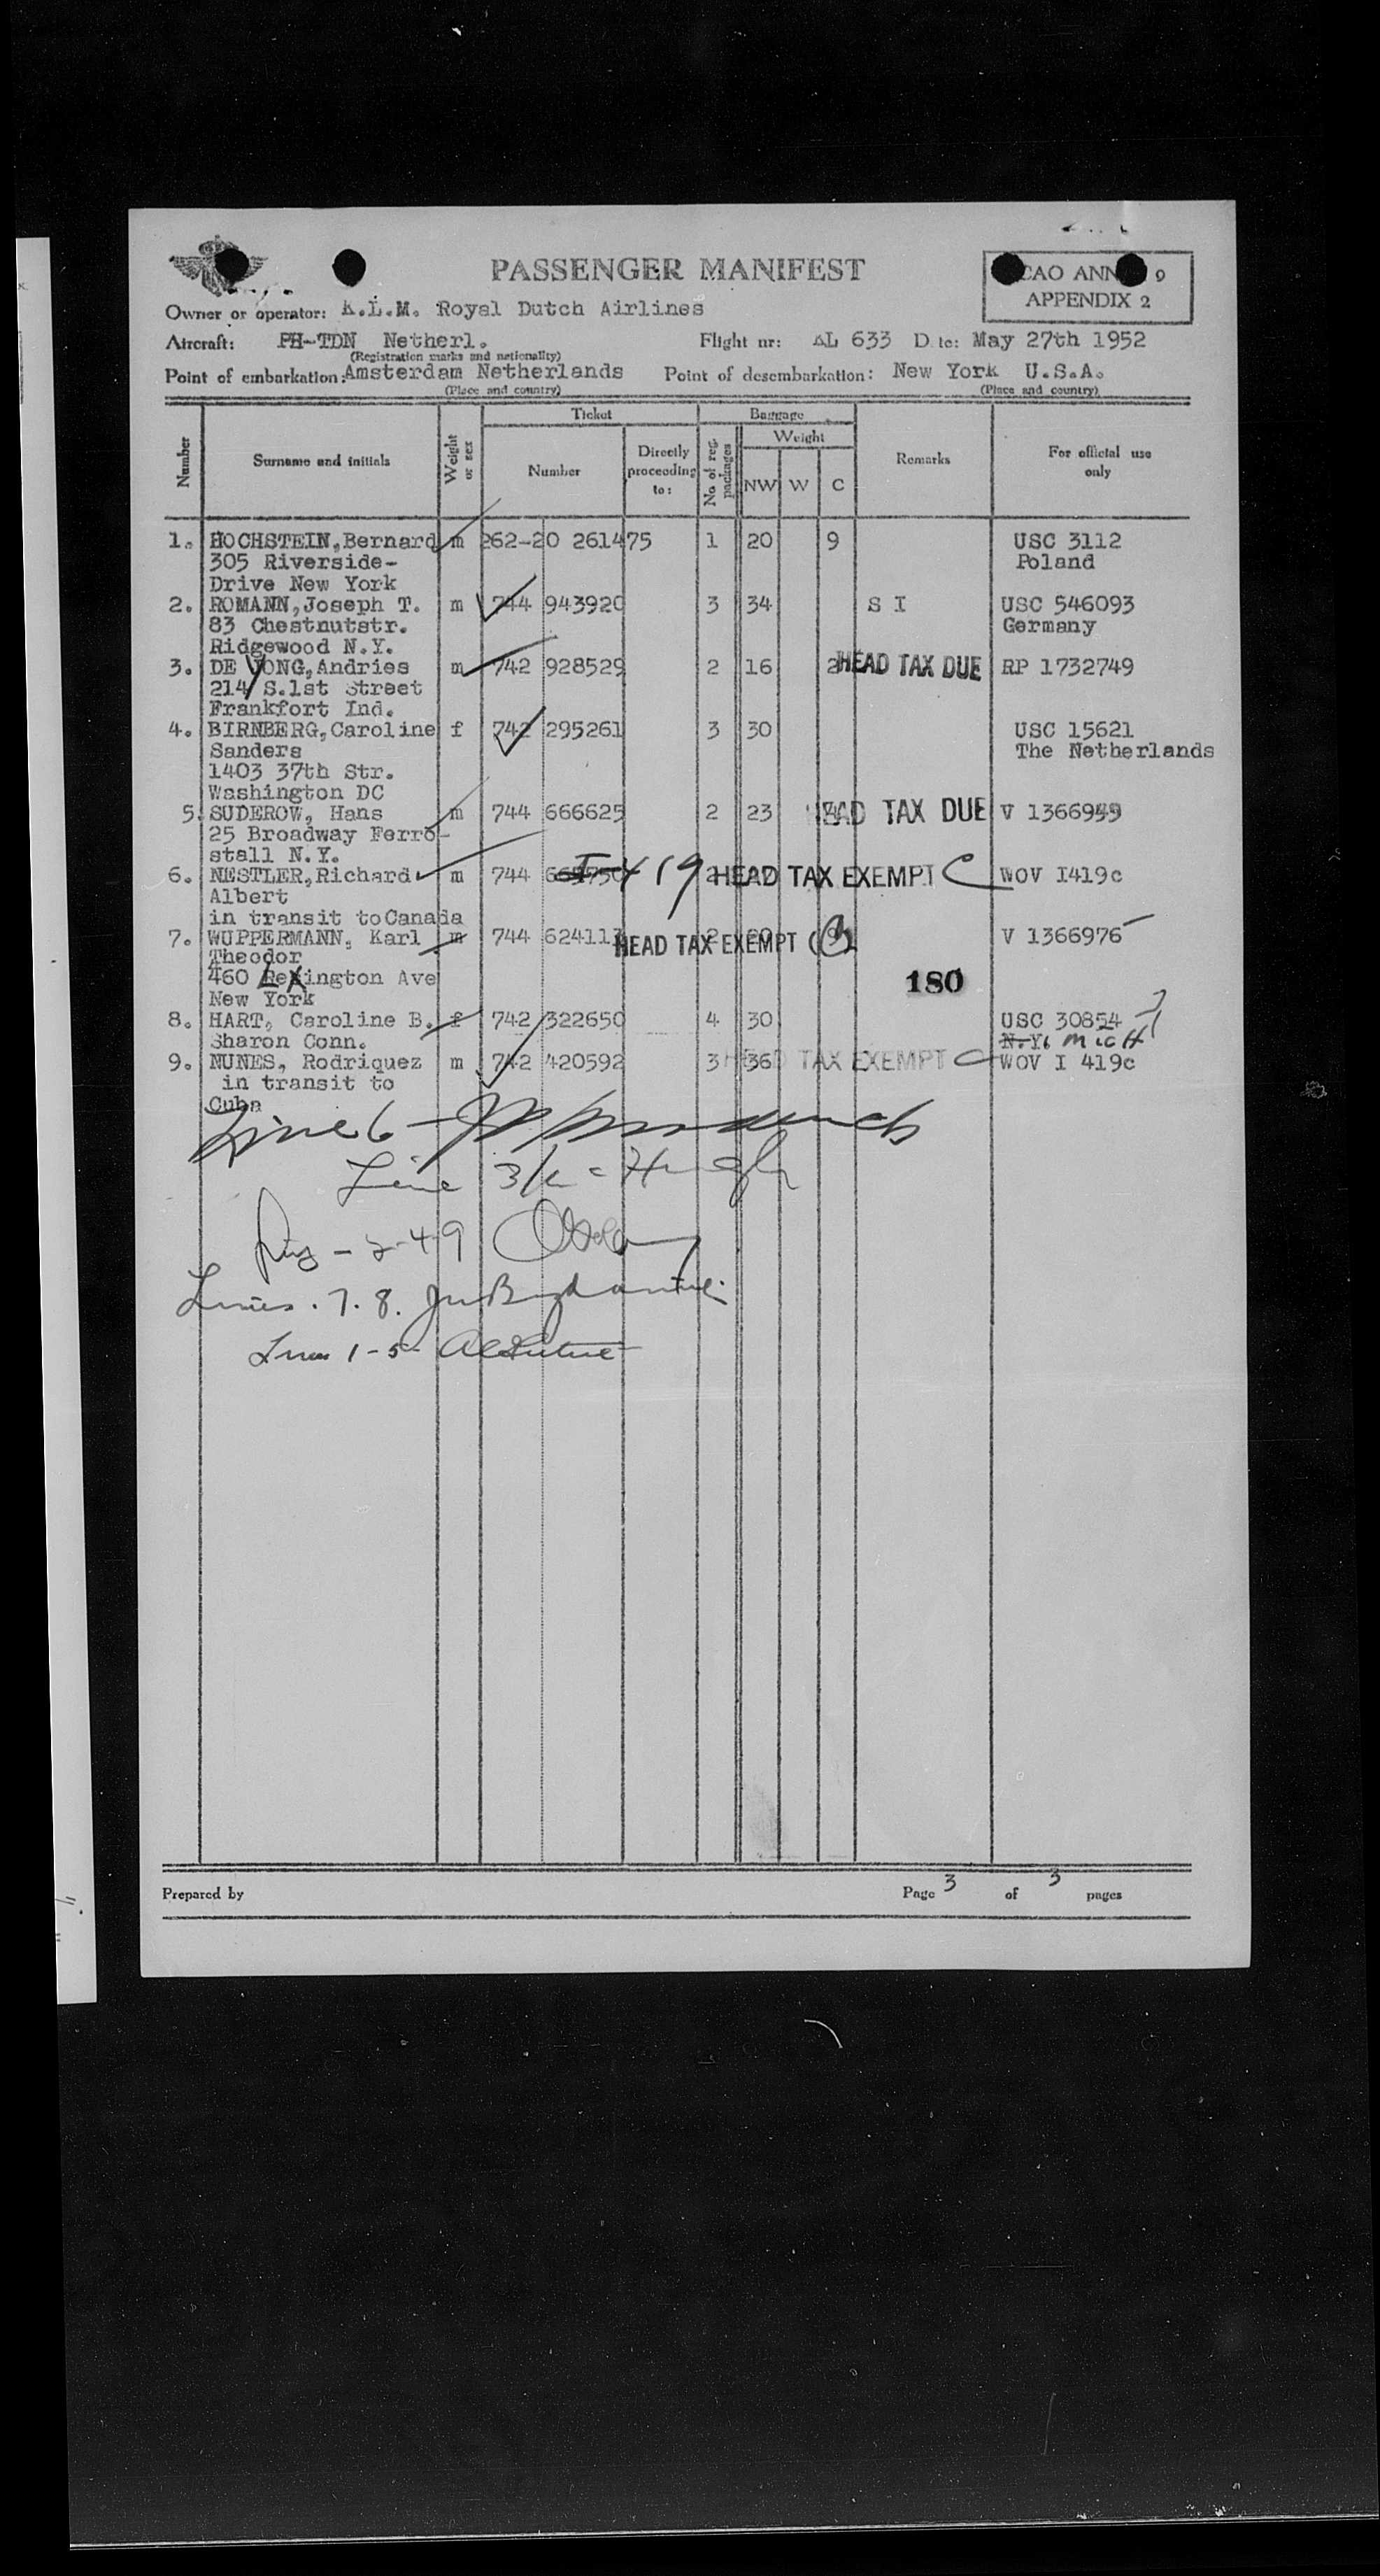 PASSENGER MANIFEST
ICAO ANNEX 9
APPENDIX 2
Owner or operator: K.L.M. Royal Dutch Airlines
Aircraft: PH-TDN Netherl. Flight nr: KL 633 Date: May 27th 1952
(Registration marks and nationality)
Point of embarkation: Amsterdam Netherlands Point of desembarkation: New York U.S.A.
(Place and country) (Place and country)
Number Surname and initials Weight or sex Ticket Baggage Remarks For official use only
Number Directly proceeding to: No of reg. packages Weight
NW W C
1. HOCHSTEIN, Bernard m 262-20 261475 1 20 9 USC 3112
305 Riverside- Poland
Drive New York
2. ROMANN, Joseph T. m 744 943920 3 34 S I USC 546093
83 Chestnutstr. Germany
Ridgewood N.Y.
3. DE JONG, Andries m 742 928529 2 16 2 HEAD TAX DUE RP 1732749
214 S.1st Street
Frankfort Ind.
4. BIRNBERG, Caroline f 742 295261 3 30 USC 15621
Sanders The Netherlands
1403 37th Str.
Washington DC
5. SUDEROW, Hans m 744 666625 2 23 HEAD TAX DUE V 1366949
25 Broadway Ferro-
stall N.Y.
6. NESTLER, Richard m 744 I-419 2 HEAD TAX EXEMPT C WOV I419c
Albert
in transit to Canada
7. WUPPERMANN, Karl m 744 624111 2 HEAD TAX EXEMPT (B) V 1366976
Theodor
460 Lexington Ave 180
New York
8. HART, Caroline B. f 742 322650 4 30 USC 30854
Sharon Conn. N.Y. Mich
9. NUNES, Rodriquez m 742 420592 3 36 HEAD TAX EXEMPT C WOV I 419c
in transit to
Cuba
Line 6 -
Line 3/
- 2-4-9
Lines. 7. 8.
Lines 1-5-
Prepared by Page 3 of 3 pages